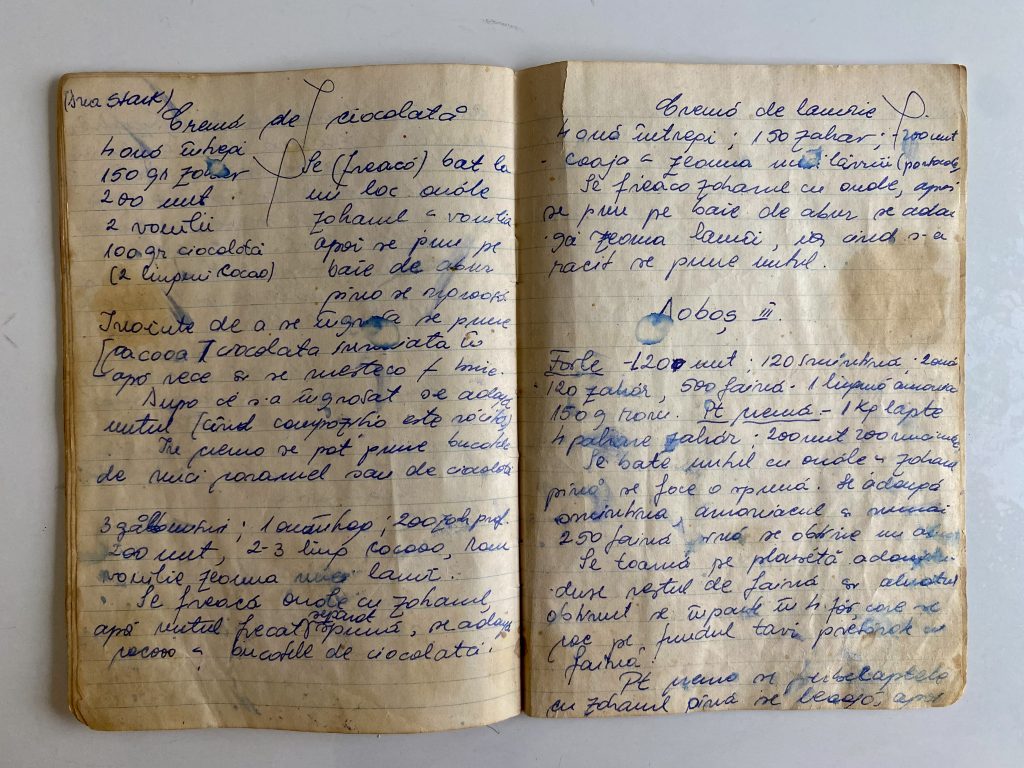 (Dna Stark)
Cremă de ciocolată
4 ouă întregi
150 gr zahăr
200 unt
2 vanilii
100 gr ciocolată
(2 linguri cacao)
Se (freacă) bat la
un loc ouăle
zahărul și vanilia
apoi se pune pe
baie de abur
pînă se
Înainte de a se îngroșa se pune
[cacaoa] ciocolata înmuiată în
apă rece și se mestecă f bine.
După ce s-a îngroșat se adaugă
untul (cînd compoziția este răcită)
În cremă se pot pune bucățele
de nuci caramel sau de ciocolată
3 gălbenusuri; 1 ou întreg; 200 zah. praf.
200 unt, 2-3 ling cacao, rom
vanilie zeama unei lămîi.
Se freacă ouăle cu zahărul,
separat
apoi untul frecat spumă, se adaugă
cacao și bucățele de ciocolată.
Cremă de lămîie
4 ouă întregi; 150 zahăr; 200 unt
coaja și zeama unei lămîi (portocale)
Se freacă zahărul cu ouăle, apoi
se pun pe baie de abur se adau
gă zeama lămîi, iar cînd s-a
răcit se pune untul.
Doboș III.
Foile - 120 unt; 120 smîntînă; 2 ouă
120 zahăr, 500 făină - 1 linguriță amoniac
150 g rom. Pt cremă - 1 Kg lapte
4 pahare zahăr; 200 unt 200
Se bate untul cu ouăle și zahărul
pînă se face o spumă. Se adaugă
smîntîna, amoniacul și numai
250 făină pînă se obține un
Se toarnă pe planșetă adaugîn
du-se restul de făină și aluatul
obținut se împarte în 4 foi care se
coc pe fundul tăvi presărat cu
făină.
Pt cremă se fierbe laptele
cu zahărul pînă se leagă, apoi